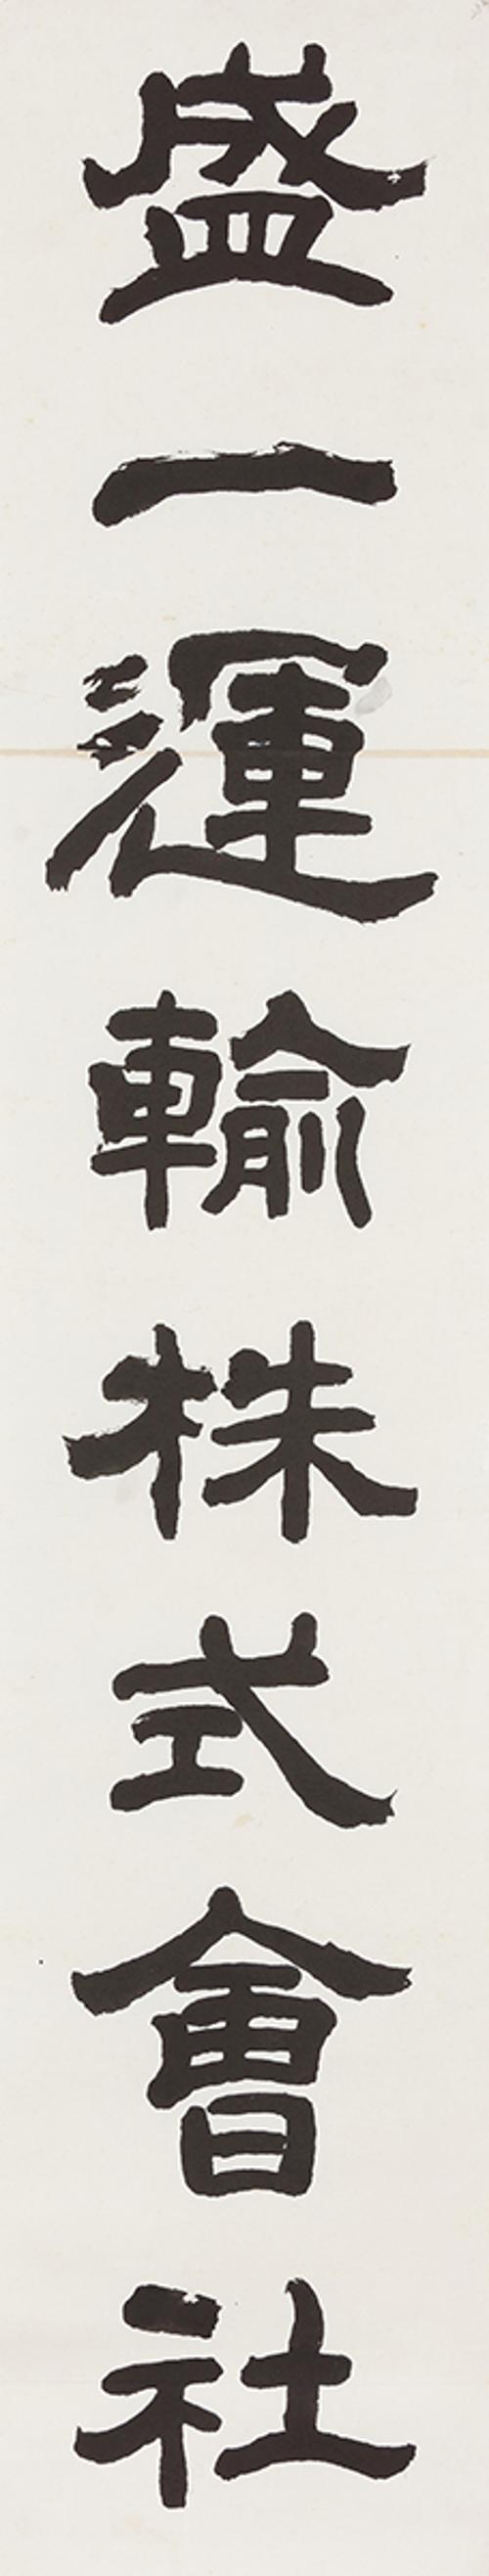 盛一運輸株式會社